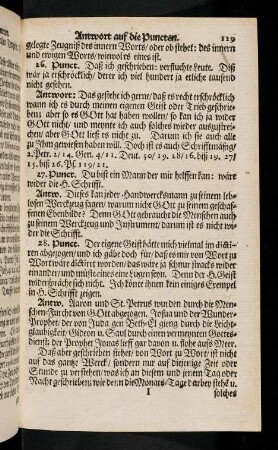 Antwort auf die Puncten. 129
gelegte Zeugniß des innern Worts / oder ob stehet: des innern
und ewigen Worts / wiewol es eines ist.
26. Punct. Daß ich geschrieben: verfluchte Leute. Diß
wär ja erschröcklich / derer ich viel hundert ja etliche tausend
nicht gesehen.
Antwort: Das gestehe ich gerne / daß es recht erschröcklich
wann ich es durch meinen eigenen Geist oder Trieb geschrie-
ben / aber so es GOtt hat haben wollen / so kan ich ja wider
GOtt nicht / und meynte ich auch solches wieder auszustrei-
chen / aber GOtt ließ es nicht zu. Darum ich sie auch alle
zu Jhm gewiesen haben will. Doch ist es auch Schrifftmäsig /
2. Petr. 2/14. Gen. 4/11. Deut. 30/19. 28/16. biß 19. 27/
15. biß 26. Ps. 119/21.
27. Punct. Du bist ein Mann der mir helffen kan: wäre
wider die H. Schrifft.
Antw. Dieses kan jeder Handwercksmann zu seinem leb-
losen Werckzeug sagen / warum nicht GOtt zu seinem geschaf-
fenen Ebenbilde? Denn GOtt gebrauchet die Menschen auch
zu seinem Werckzeug und Instrument / darum ist es nicht wi-
der die H. Schrifft.
28. Punct. Der eigene Geist hätte mich vielmal im dicti-
ren abgezogen / und ich gäbe doch für / daß es mir von Wort zu
Wort wäre dictirt worden / das wäre ja schnur stracks wider
einander / und müste eines eine Lugen seyn. Denn der H. Geist
widersprächte sich nicht. Jch könte ihnen kein einiges Exempel
in H. Schrifft zeigen.
Antw. Aaron und St. Petrus wurden durch die Men-
schen-Furcht von GOtt abgezogen, Josua und der Wunder-
Prophet / der von Juda gen Beth-El gieng durch die Leicht-
glaubigkeit / Gideon u. Saul durch einen vermeynten Gottes-
dienst / der Prophet Jonas lieff gar davon u. flohe aufs Meer.
Daß aber geschrieben stehet / von Wort zu Wort / ist nicht
auf das gantze Werck / sondern nur auf diejenige Zeit oder
Stunde zu verstehen / was ich an diesem und jenem Tag oder
Nacht geschrieben / wie denn die Monats / Tage darbey stehe u.
I solches